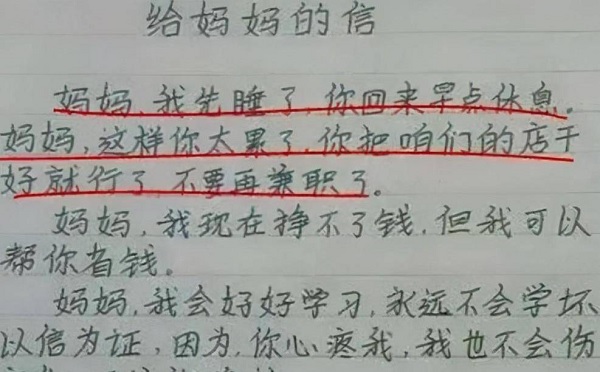 给妈妈的信
妈妈,我先睡了,你回来早点休息。
妈妈,这样你太累了,你把咱们的店干
好就行了,不要再兼职了。
妈妈,我现在挣不了钱,但我可以
帮你省钱。
妈妈,我会好好学习,永远不会学坏
以信为证,因为,你心疼我,我也不会伤